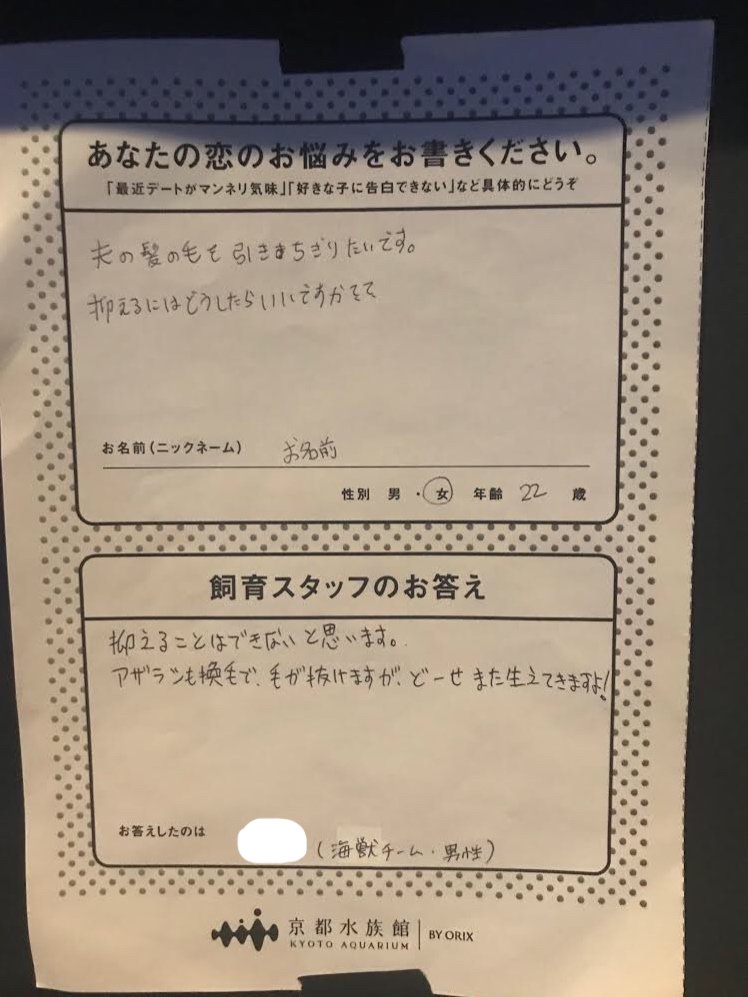 あなたの恋のお悩みをお書きください。
「最近デートがマンネリ気味」「好きな子に告白できない」など具体的にどうぞ
夫の髪の毛を引きまちぎりたいです。
抑えるにはどうしたらいいですか
お名前(ニックネーム) お名前
性別 男・女 年齢 22 歳
飼育スタッフのお答え
抑えることはできないと思います。
アザラシも換毛で、毛が抜けますが、どーせまた生えてきますよ!
お答えしたのは (海獣チーム・男性)
京都水族館
KYOTO AQUARIUM
BY ORIX